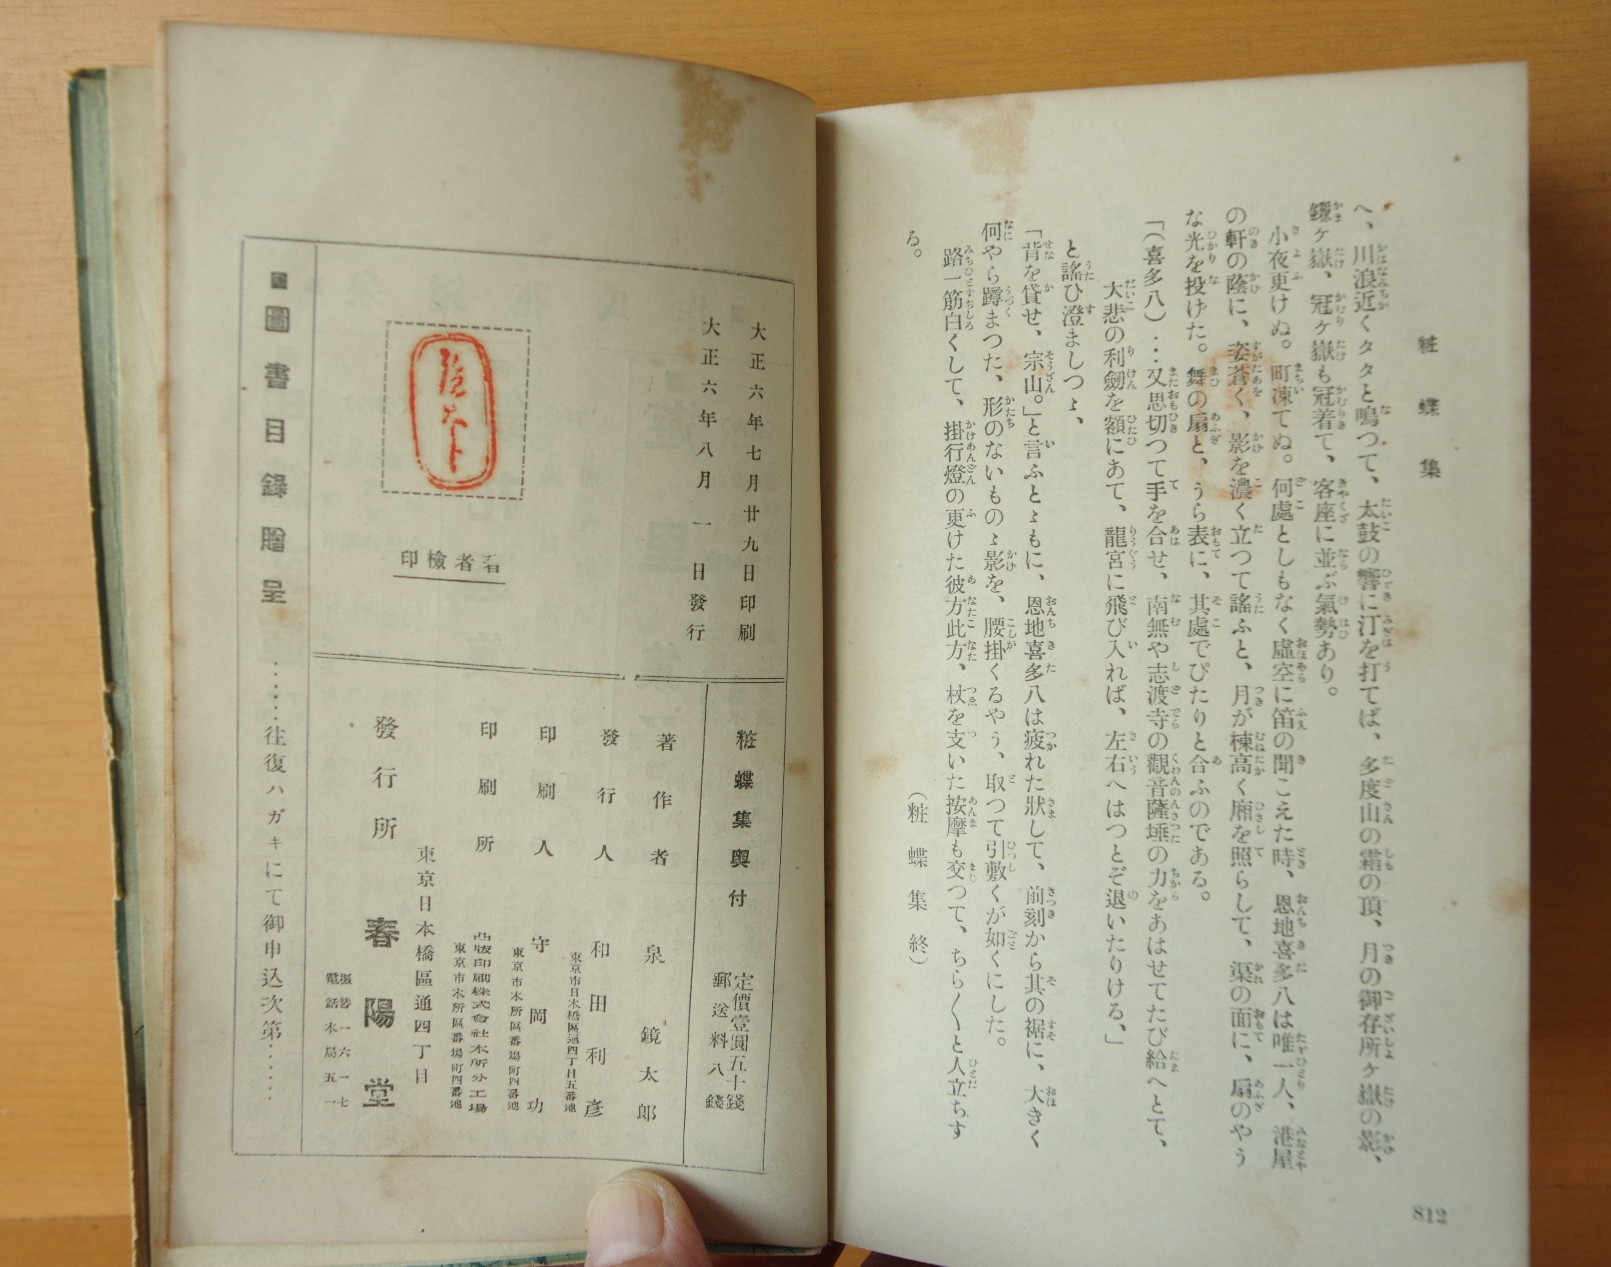 粧蝶集
へ、川浪近くタタと鳴つて、太鼓の響に汀を打てば、多度山の霜の頂、月の御存所ヶ嶽の影、
鎌ヶ嶽、冠ヶ嶽も冠着て、客座に並ぶ氣勢あり。
小夜更けぬ。町凍てぬ。何處としもなく虛空に笛の聞こえた時、恩地喜多八は唯一人、港屋
の軒の蔭に、姿蒼く、影を濃く立つて謠ふと、月が棟高く廂を照らして、渠の面に、扇のやう
な光を投げた。舞の扇と、うら表に、其處でぴたりと合ふのである。
「(喜多八)‥‥又思切つて手を合せ、南無や志渡寺の觀音薩埵の力をあはせてたび給へとて、
大悲の利劒を額にあて、龍宮に飛び入れば、左右へはつとぞ退いたりける、」
と謠ひ澄ましつゝ、
「背を貸せ、宗山。」と言ふとゝもに、恩地喜多八は疲れた狀して、前刻から其の裾に、大きく
何やら蹲まつた、形のないものゝ影を、腰掛くるやう、取つて引敷くが如くにした。
路一筋白くして、掛行燈の更けた彼方此方、杖を支いた按摩も交つて、ちら〳〵と人立ちす
る。
(粧蝶集終)
812
大正六年七月廿九日印刷
大正六年八月一日發行
著者檢印
粧蝶集奧付
定價壹圓五十錢
郵送料八錢
著作者 泉鏡太郎
東京市日本橋區通四丁目五番地
發行人 和田利彥
東京市本所區番場町四番地
印刷人 守岡功
東京市本所區番場町四番地
印刷所 凸版印刷株式會社本所分工場
東京日本橋區通四丁目
發行所 春陽堂
振替一六一七
電話本局五一
■圖書目錄贈呈‥‥‥往復ハガキにて御申込次第‥‥‥